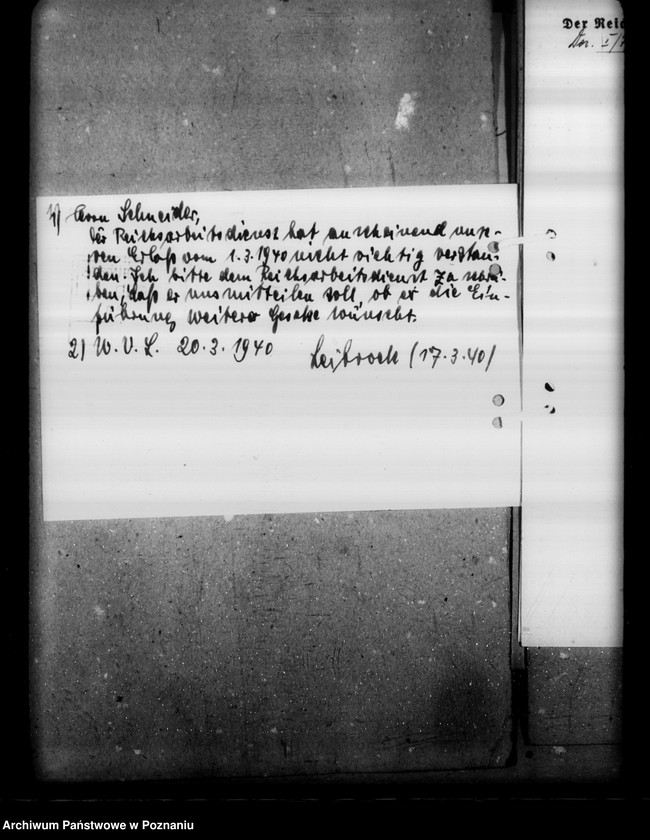 Der Reic
1) Herrn Schneider,
Der Reichsarbeitsdienst hat anscheinend unse-
ren Erlaß vom 1.3.1940 nicht richtig verstan-
den. Ich bitte dem Reichsarbeitsdienst zu schrei-
ben, daß er uns mitteilen soll, ob er die Ein-
führung weiterer Gesetze wünscht.
2) W. V. L. 20.3.1940
Leibrock (17.3.40)
Archiwum Państwowe w Poznaniu